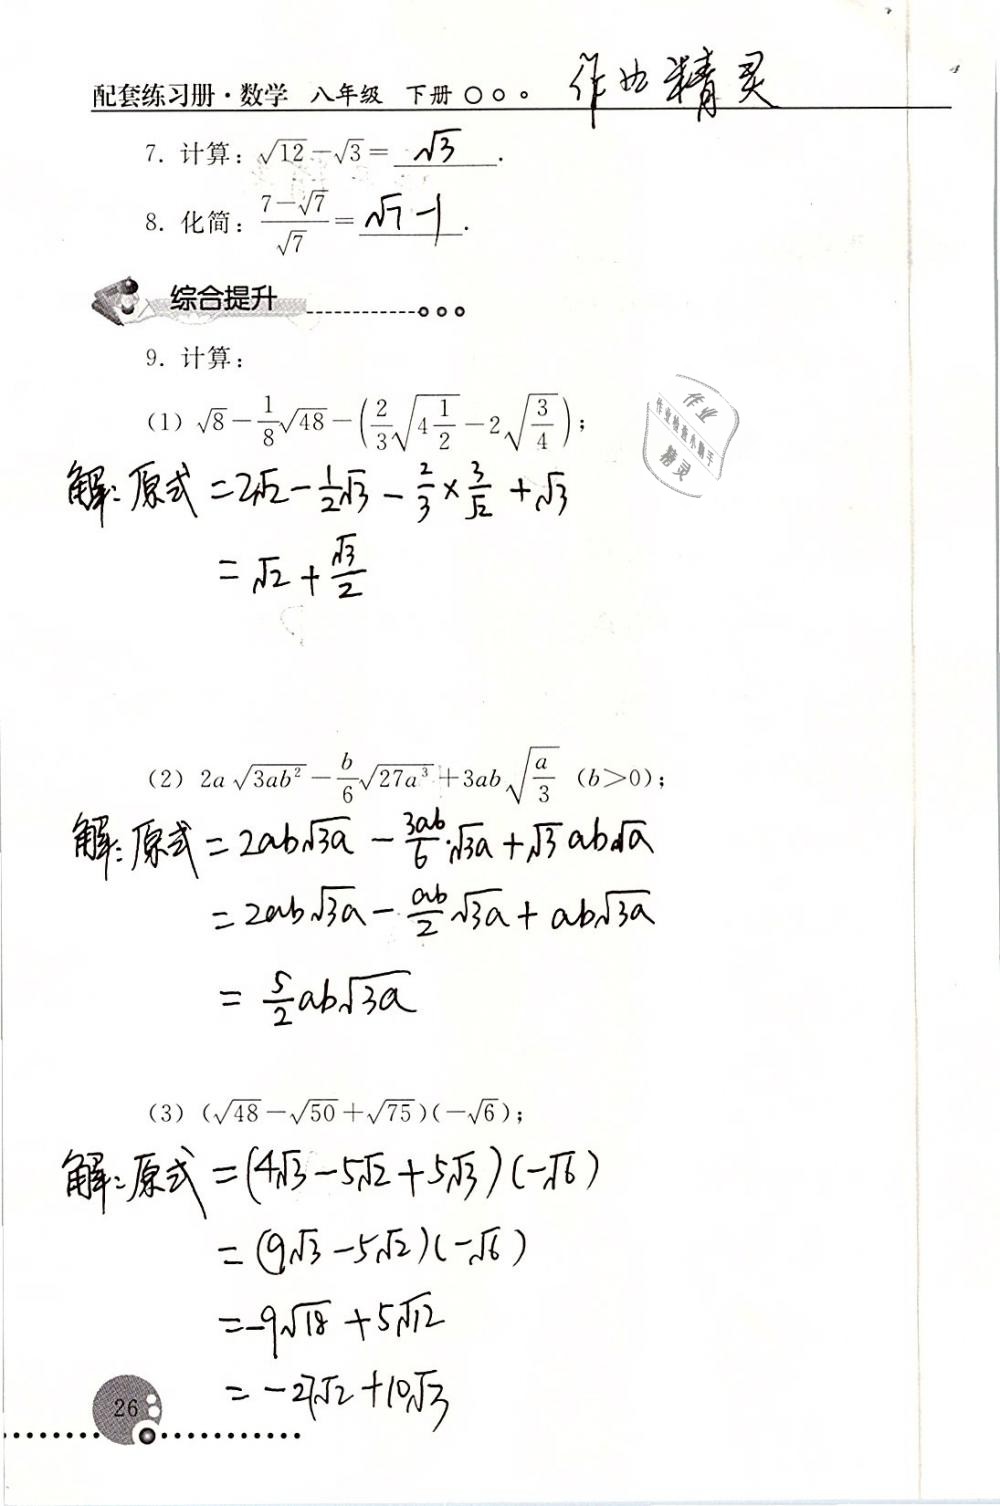 配套练习册·数学 八年级 下册 作业精灵
7. 计算：√12－√3＝√3.
8. 化简：(7－√7)/√7＝√7－1.
综合提升
9. 计算：
(1) √8－1/8√48－(2/3√(4 1/2)－2√(3/4))；
作业
作业检查小助手
精灵
解：原式＝2√2－1/2√3－2/3×3/√2＋√3
＝√2＋√3/2
(2) 2a√(3ab²)－b/6√(27a³)＋3ab√(a/3) (b＞0)；
解：原式＝2ab√3a－3ab/6·√3a＋√3ab√a
＝2ab√3a－ab/2√3a＋ab√3a
＝5/2ab√3a
(3) (√48－√50＋√75)(－√6)；
解：原式＝(4√3－5√2＋5√3)(－√6)
＝(9√3－5√2)(－√6)
＝－9√18＋5√12
＝－27√2＋10√3
26